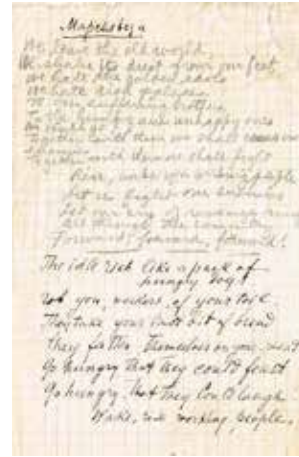 Марсельеза
We leave the old world
We shake its dust from our feet
We hate the golden idols
We hate rich palaces
suffering brothers
To the hungry and unhappy ones
Together with them we shall
Together with them we shall fight
Rise, wake you working people
let us fight our enemies
let our cry of revenge
all through the country
Forward, forward, forward!
The idle rich like a pack of
hungry dogs
rob you, workers, of your toil
They take your last bit of bread
They fatten themselves on your meat
Go hungry that they could feast
Go hungry that they could laugh
Wake, rise working people,